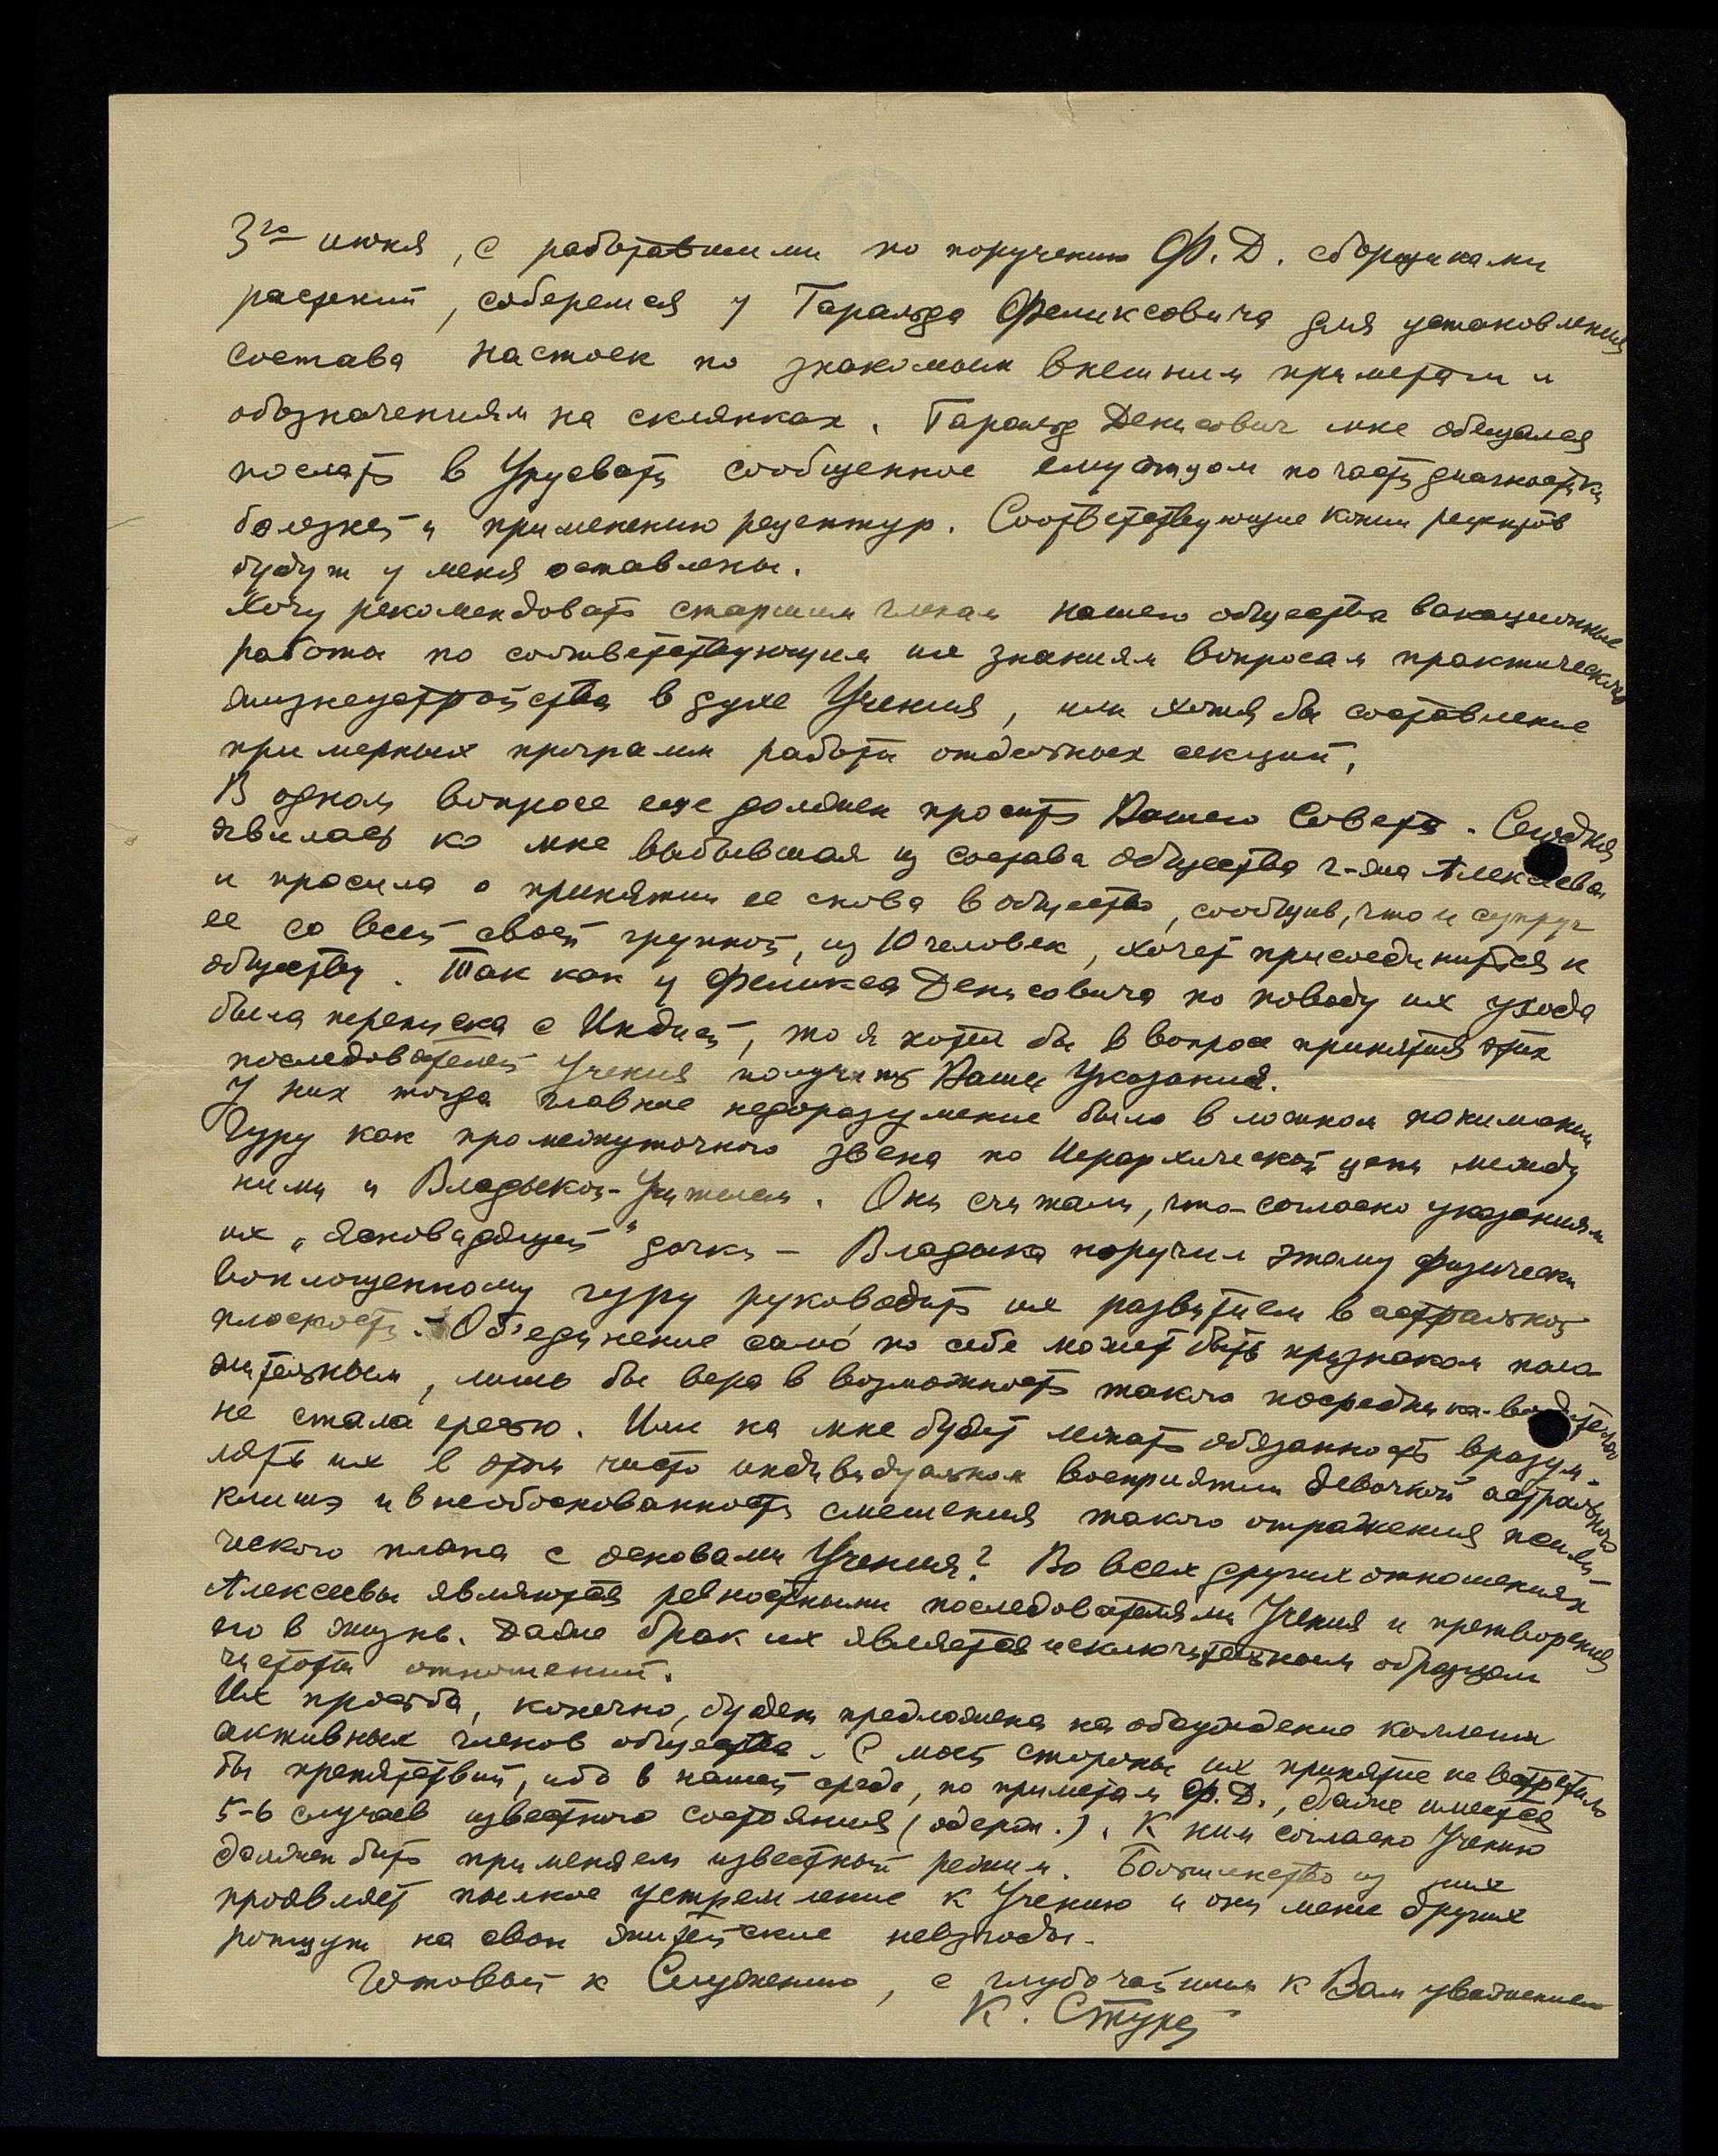 3го июня, с работавшими по поручению Ф. Д. сборщиками
растений, соберемся у Гаральда Феликсовича для установления
состава настоек по знакомым внешним приметам и
обозначениям на склянках. Гаральд Денисович мне обещался
послать в Урусвати сообщенное ему отцом по части диагностики
болезней и применению рецептур. Соответствующие копии рецептов
будут у меня оставлены.
Хочу рекомендовать старшим членам нашего общества вакационные
работы по соответствующим их знаниям вопросам практического
жизнеустройства в духе Учения, или хотя бы составление
примерных программ работы отдельных секций.
В одном вопросе еще должен просить Вашего Совета. Сегодня
явилась ко мне выбывшая из состава общества г-жа Алексеева
и просила о принятии ее снова в общество, сообщив, что и супруг
ее со всей своей группой, из 10 человек, хочет присоединиться к
обществу. Так как у Феликса Денисовича по поводу их ухода
была переписка с Индией, то я хотел бы в вопросе принятия этих
последователей Учения получить Ваши Указания.
У них тогда главное недоразумение было в ложном понимании
Гуру как промежуточного звена по Иерархической цепи между
ними и Владыкой-Учителем. Они считали, что согласно указаниям
их „ясновидящей" дочки – Владыка поручил этому физически
воплощенному гуру руководить их развитием в астральной
плоскости. – Объединение само по себе может быть признаком поло-
жительным, лишь бы вера в возможность такого посредника-водителя
не стала ересью. Или на мне будет лежать обязанность вразум-
лять их в этом чисто индивидуальном восприятии девочкой астрального
клише и в необоснованности смешения такого отражения психи-
ческого плана с основами Учения? Во всех других отношениях
Алексеевы являются ревностными последователями Учения и претворения
его в жизнь. Даже брак их является исключительным образцом
чистоты отношений.
Их просьба, конечно, будет предложена на обсуждение коллегии
активных членов общества. С моей стороны их принятие не встретило
бы препятствий, ибо в нашей среде, по приметам Ф. Д., даже имеется
5-6 случаев известного состояния (одерж.). К ним согласно Учению
должен быть применяем известный режим. Большинство из них
проявляет пылкое устремление к Учению и они менее других
ропщут на свои житейские невзгоды.
Готовый к Служению, с глубочайшим к Вам уважением
К. Стуре